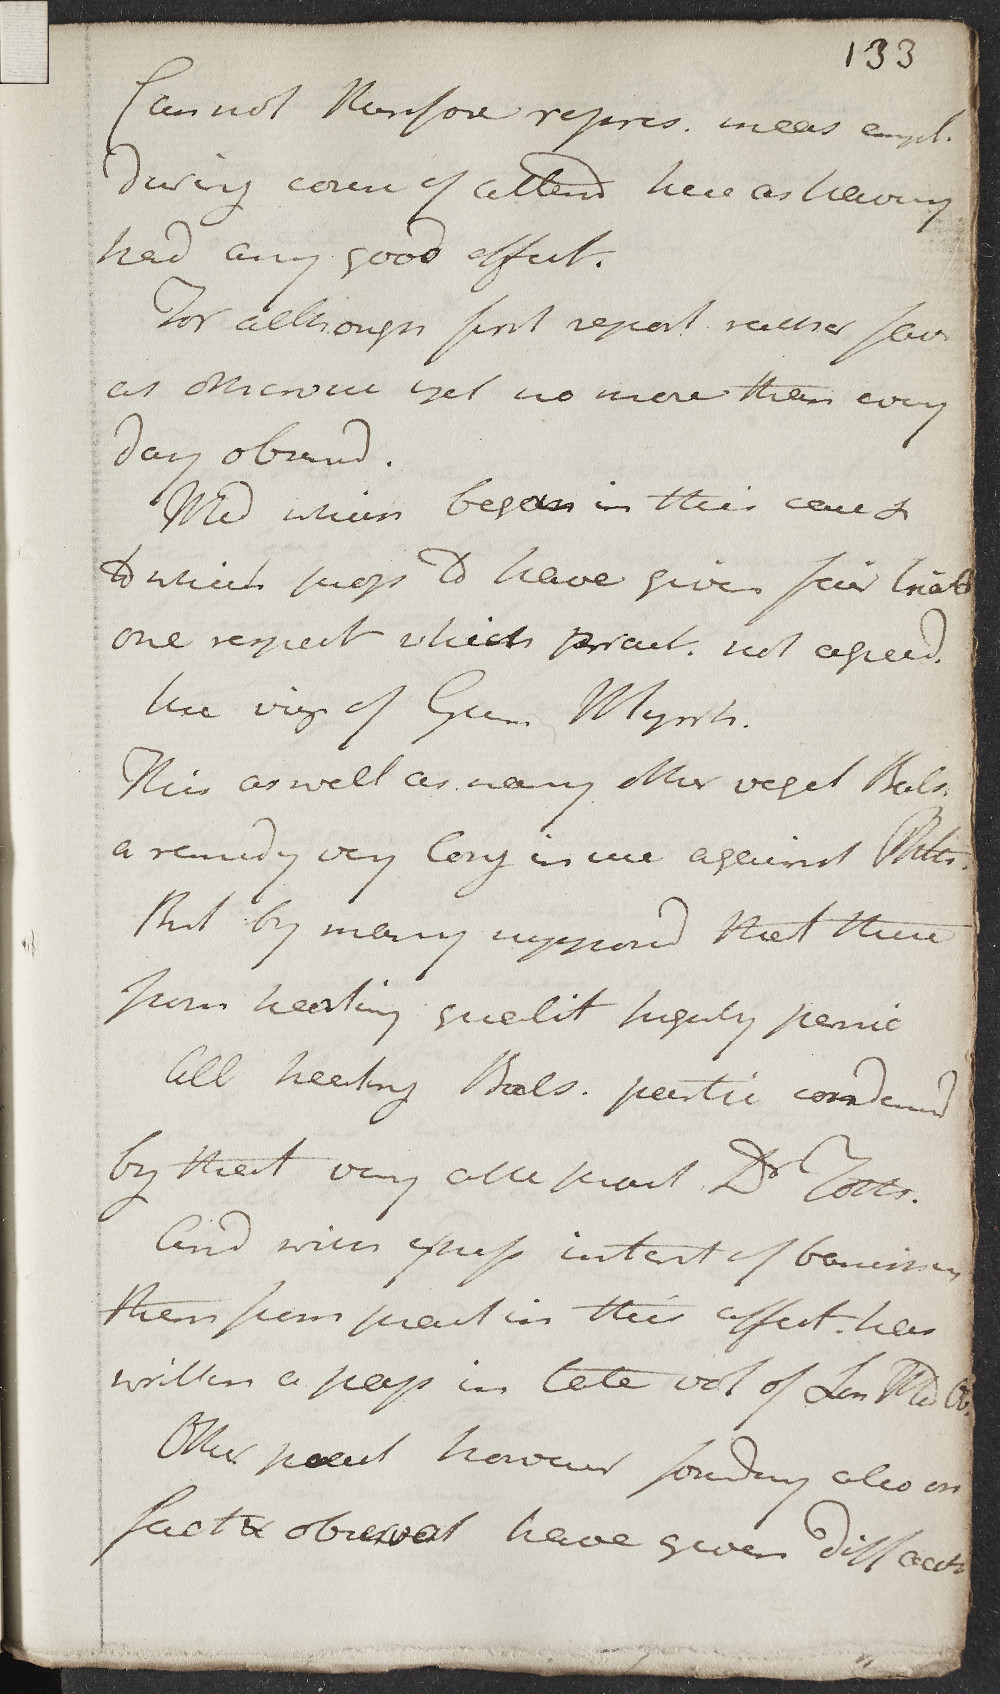 133
Cannot therefore repres. meas empl.
during course of attend here as having
had any good effect.
For although first report rather fav
as otherwise yet no more than every
day observd.
Med which began in this case &
to which props to have given fair trial
one respect which pract. not agreed.
the viz of Gum Myrrh.
This as well as many other veget Bals.
a remedy very long in use against Phthis.
But by many supposed that these
from heating qualit highly pernic
All heating Bals. partic condemnd
by that very able pract Dr Fothr.
And with express intent of banishing
them from pract in this affect. has
written a pap in late vol of Lon Med Ob.
Other pract however founding also on
fact & observat have given diff acct